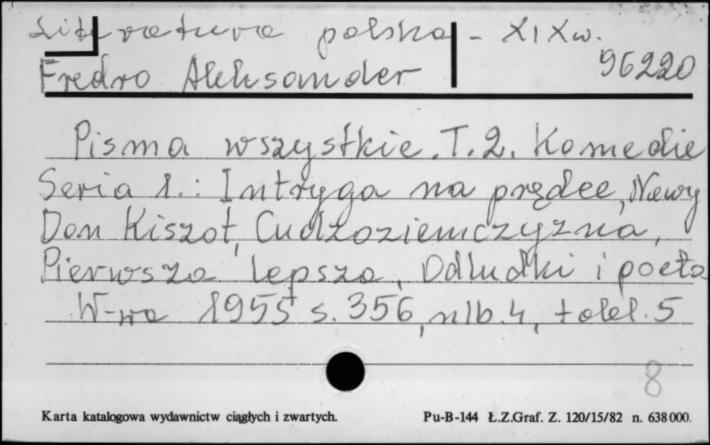 Literatura polska - XIX w.
96220
Fredro Aleksander
Pisma wszystkie. T. 2. Komedie
Seria 1.: Intryga na prędce, Nowy
Don Kiszot, Cudzoziemczyzna,
Pierwsza lepsza, Odludki i poeta
W-wa 1955 s. 356, nlb. 4, tabl. 5
8
Karta katalogowa wydawnictw ciągłych i zwartych. Pu-B-144 Ł.Z.Graf. Z. 120/15/82 n. 638000.